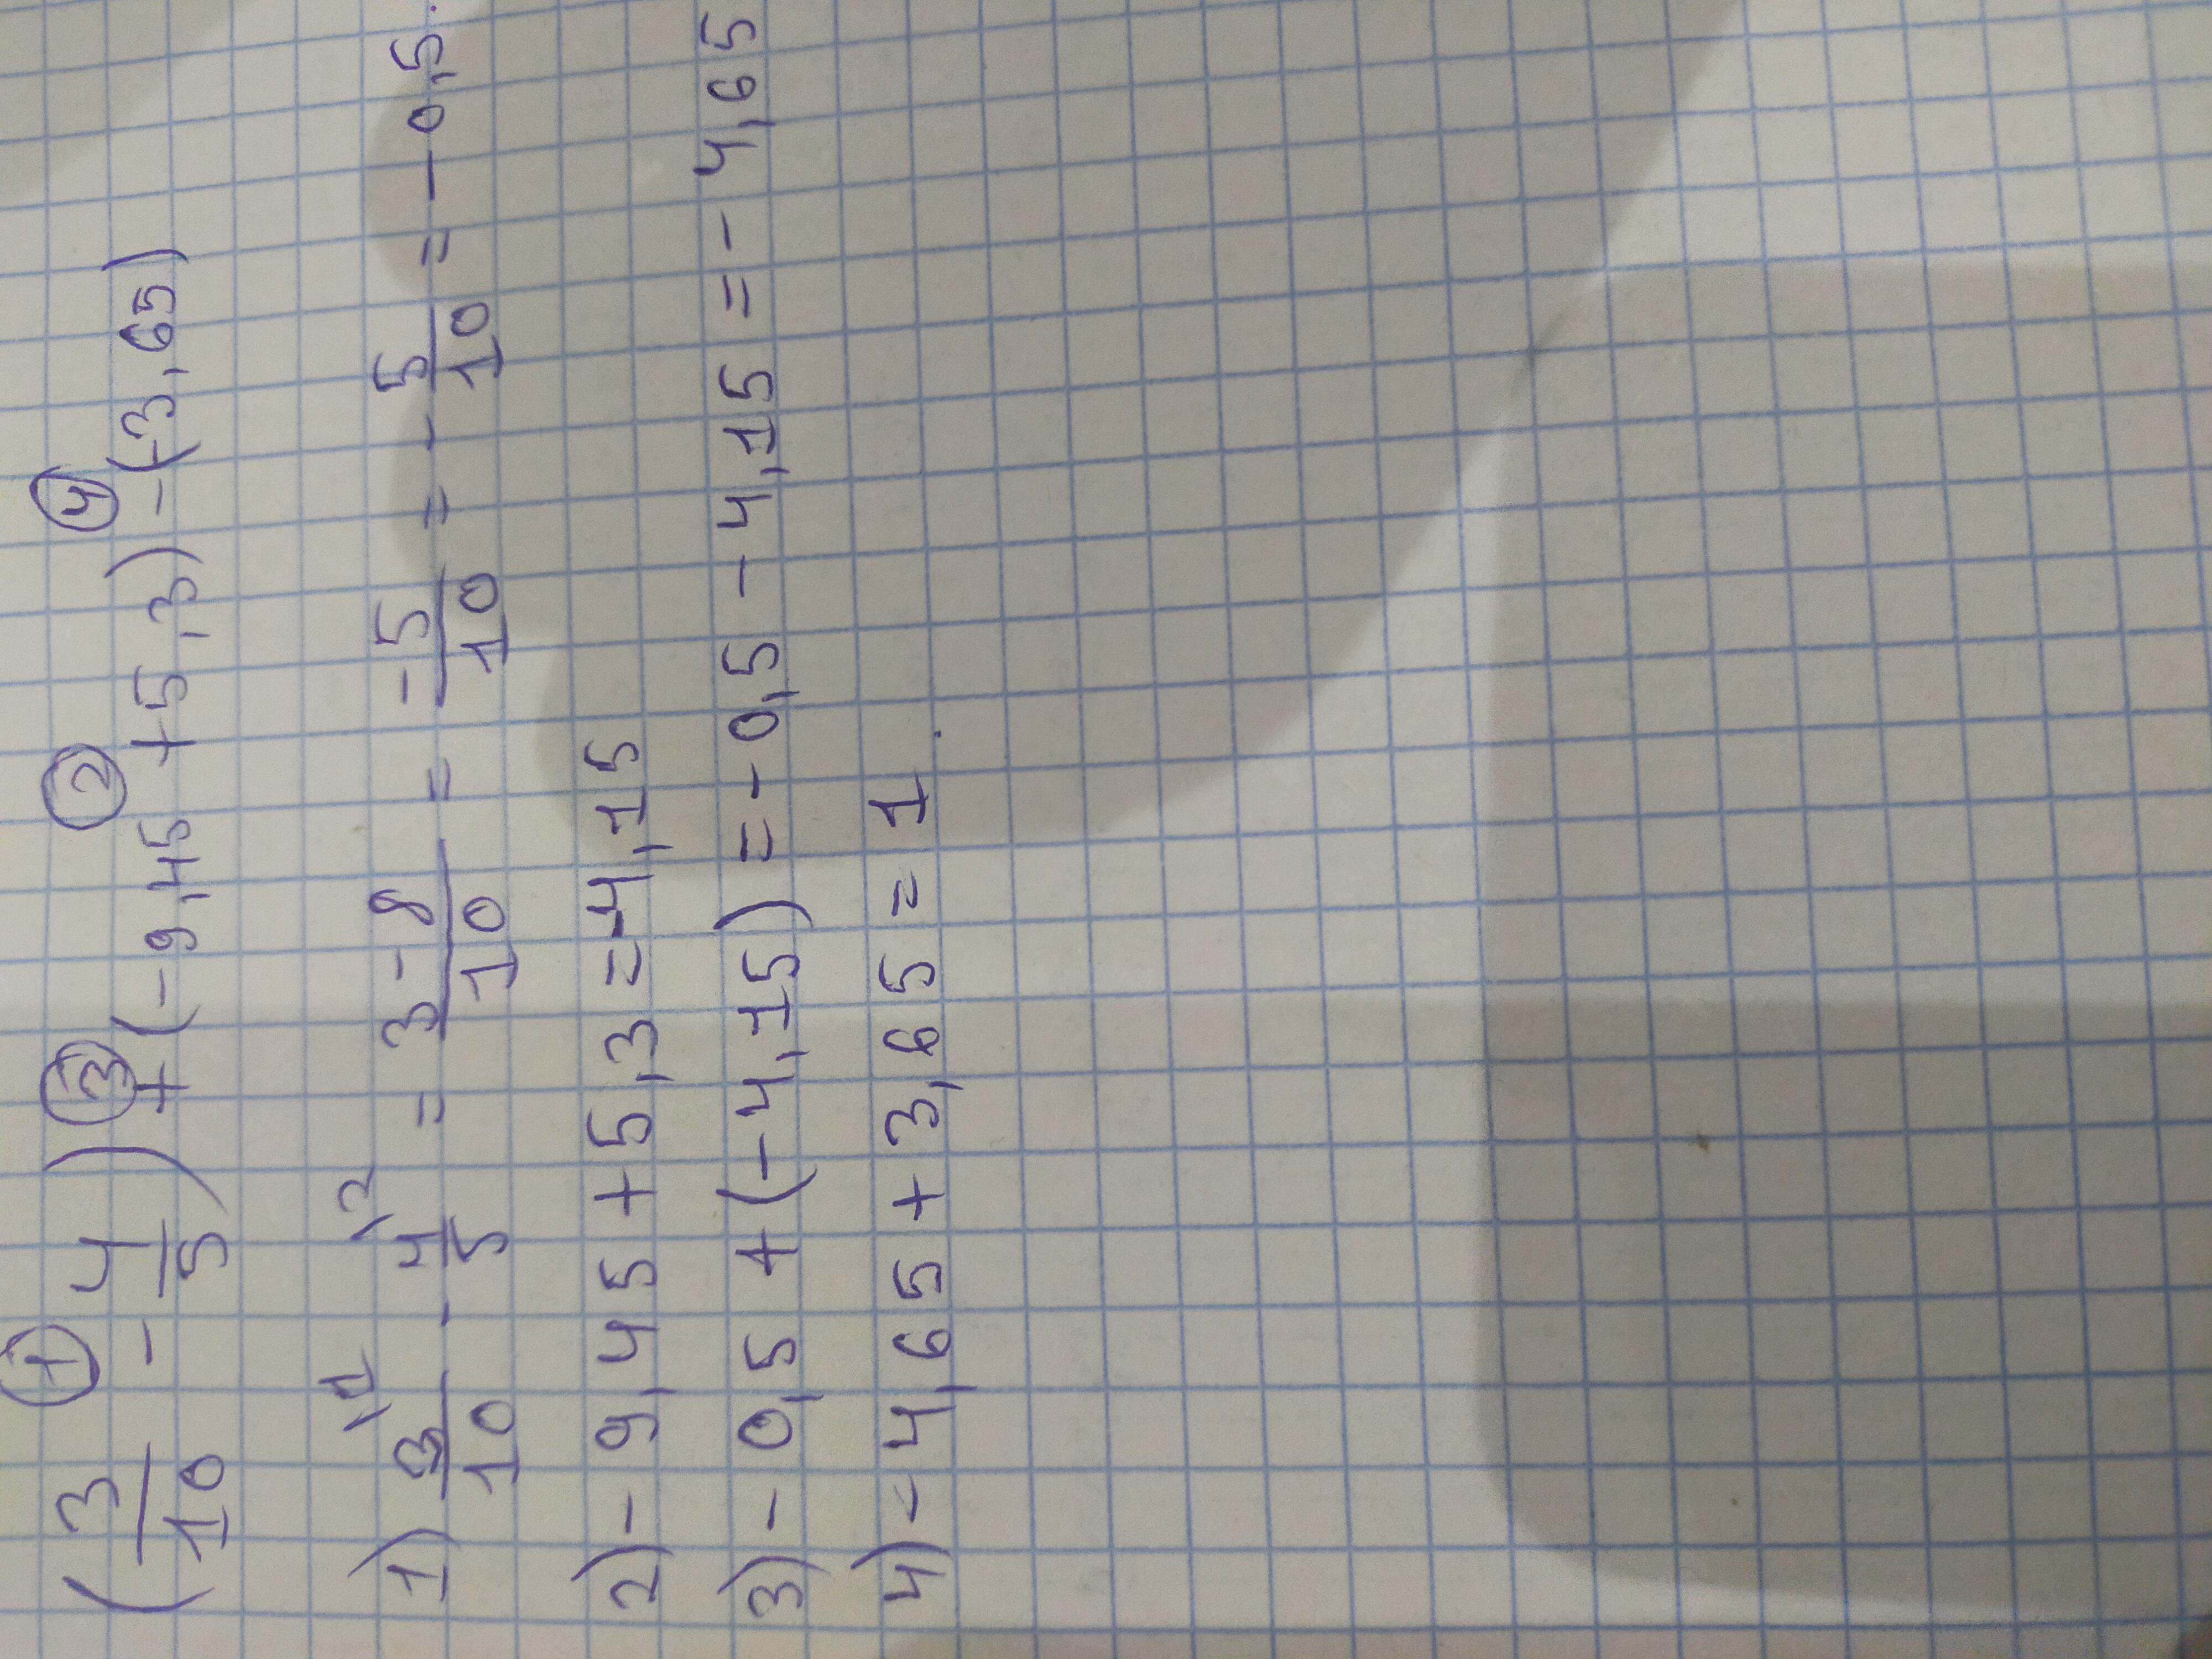 (3/10 - 4/5) + (-9,45 + 5,3) - (-3,65)
① ③ ② ④
1) 3/10 \1 - 4/5 \2 = 3-8/10 = -5/10 = - 5/10 = -0,5.
2) -9,45 + 5,3 = -4,15
3) -0,5 + (-4,15) = -0,5 - 4,15 = -4,65
4) -4,65 + 3,65 = 1.